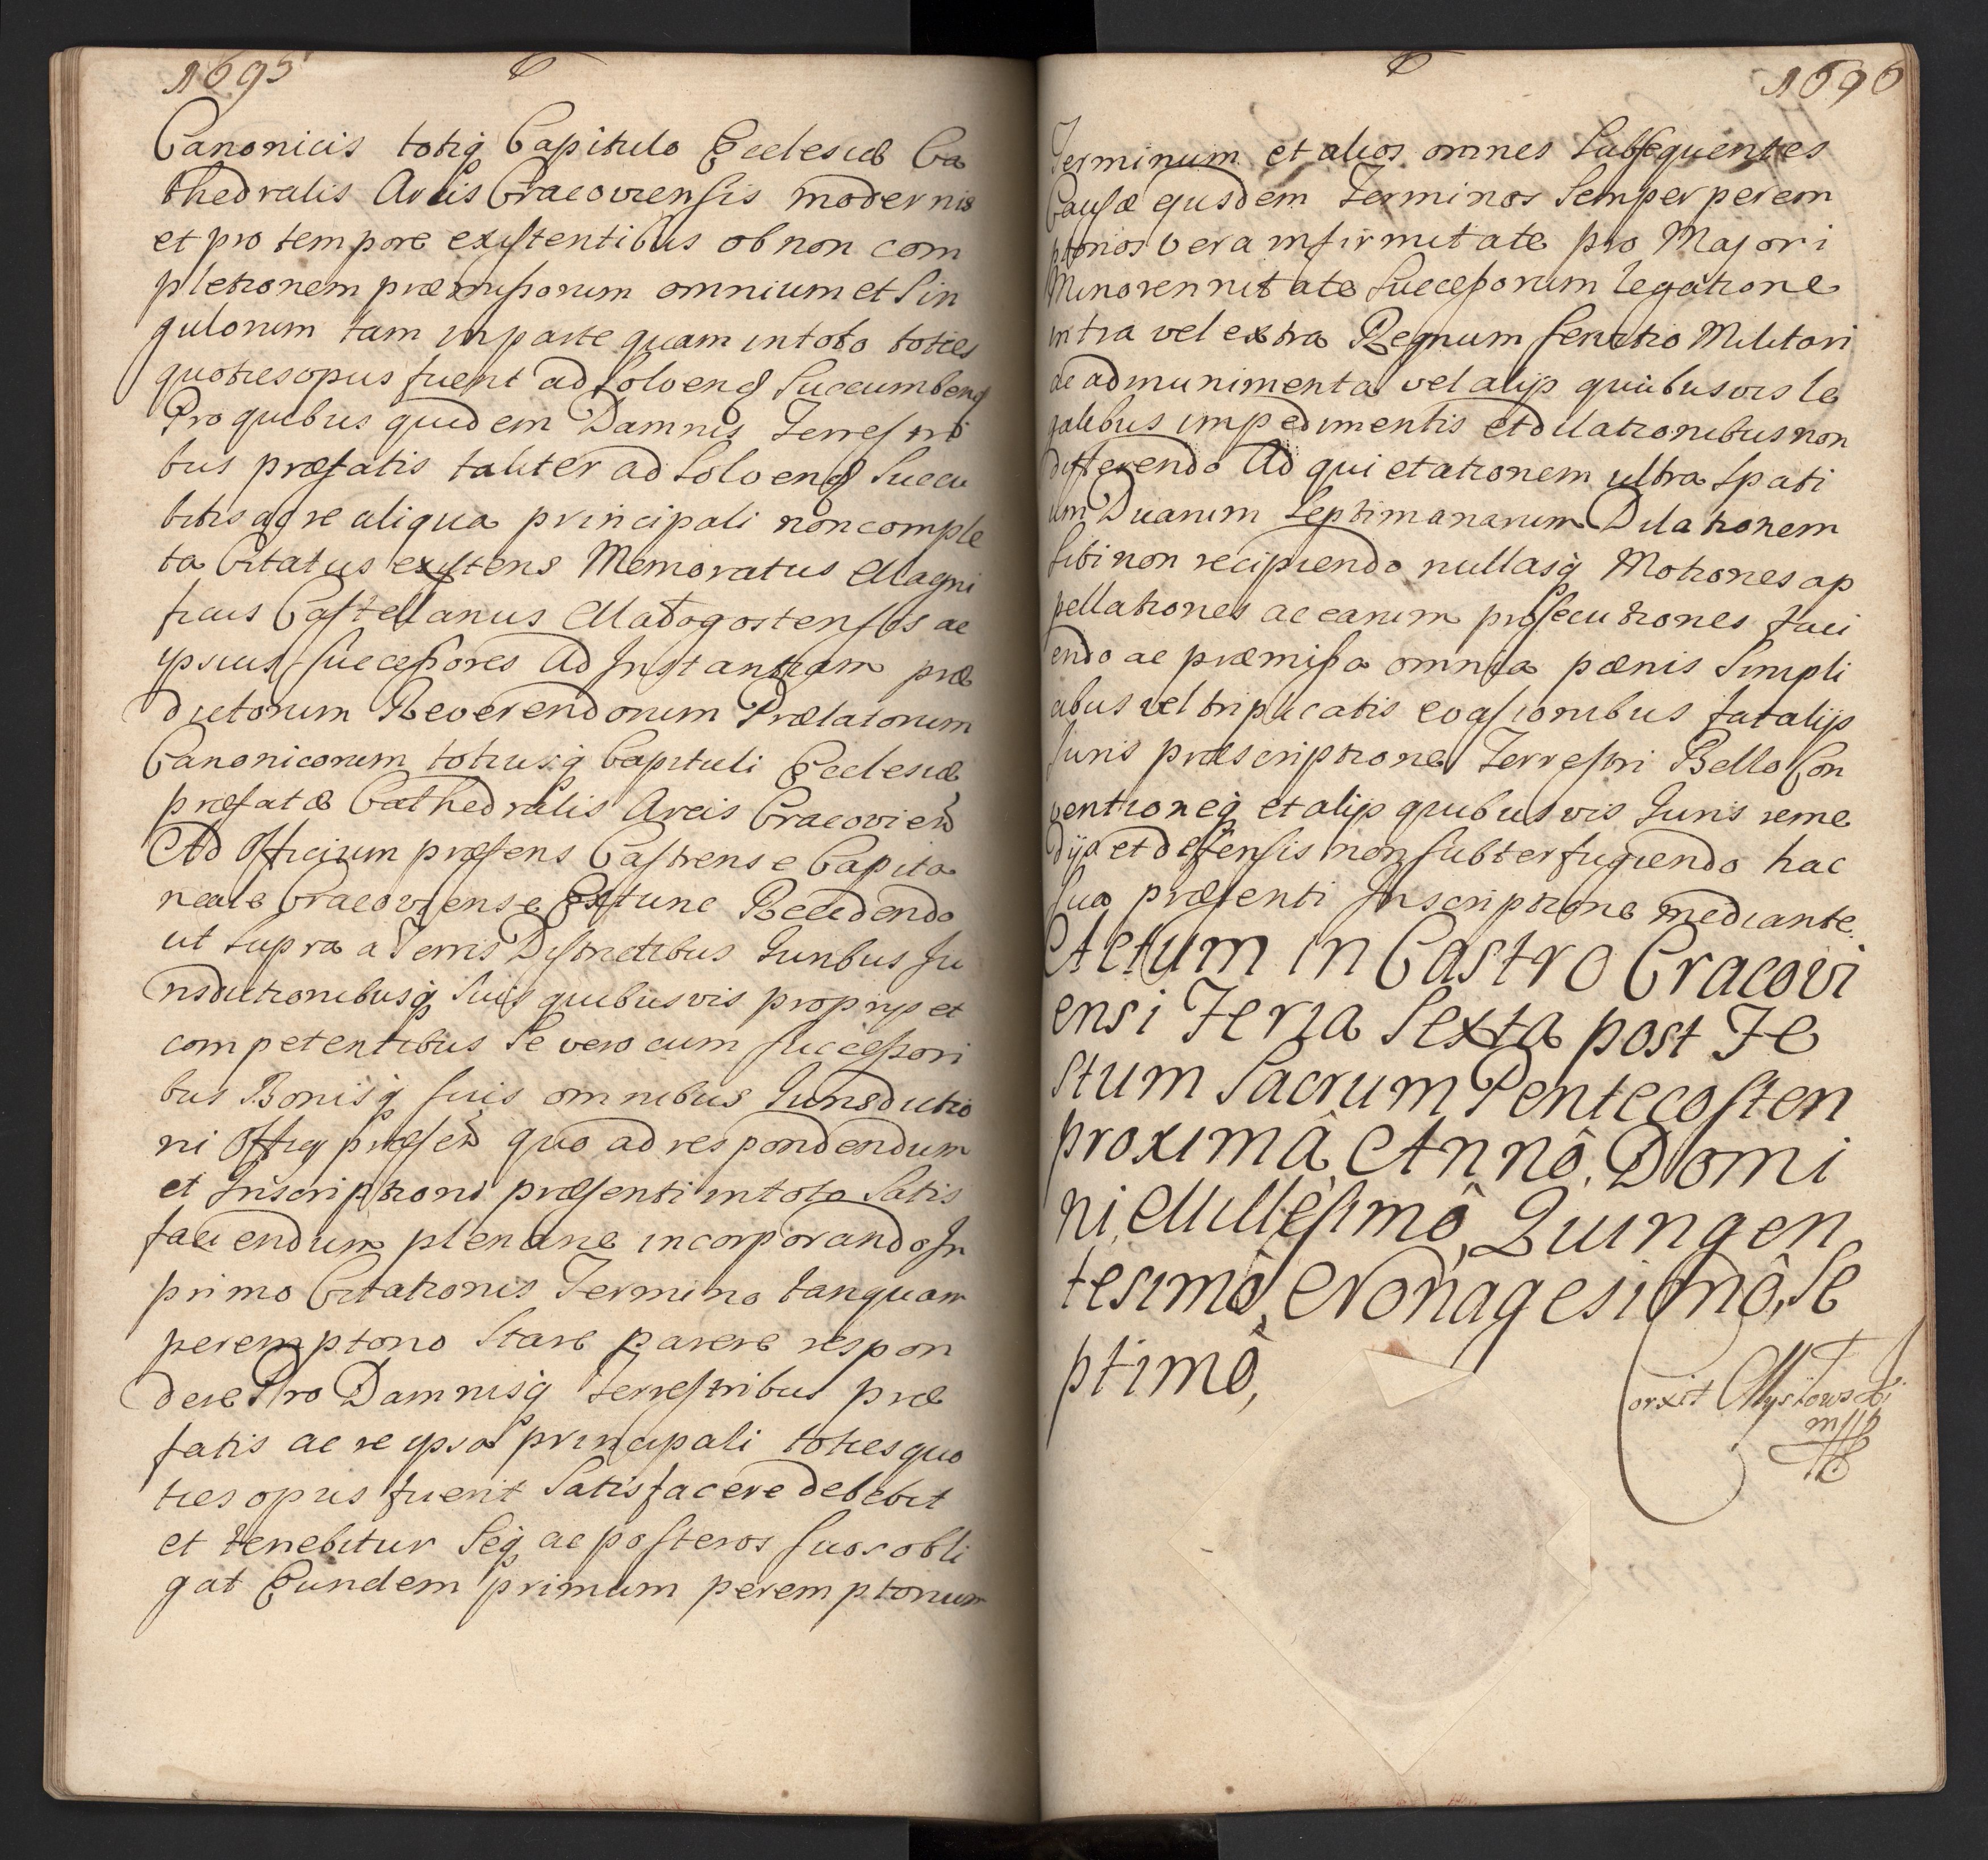 1695
Canonicis totiq Capitulo Ecclesiæ Ca
thedralis Arcis Cracoviensis modernis
et pro tempore existentibus ob non com
pletionem præmissorum omnium et Sin
gulorum tam in parte quam in toto toties
quoties opus fuerit ad Solvend Succumbend
Pro quibus quidem Damnis Terrestri
bus præfatis taliter ad Solvend Succu
bitis ac re aliqua principali non comple
ta Citatus existens Memoratus Magni
ficus Castellanus Małogostensis ac
ipsius Successores Ad Instantiam præ
dictorum Reverendorum Prælatorum
Canonicorum totiusq Capituli Ecclesiæ
præfatæ Cathedralis Arcis Cracovien
Ad Officium præsens Castrense Capita
neale Cracoviense Extunc Recedendo
ut Supra a Terris Districtibus Iuribus Iu
risdictionibusq Suis quibusvis proprijs et
competentibus Se vero cum Successori
bus Bonisq suis omnibus Iurisdictio
ni Offiy præsen quo ad respondendum
et Inscriptioni præsenti in toto Satis
faciendum plenane incorporando In
primo Citationis Termino tanquam
peremptorio Stare parere respon
dere Pro Damnisq terrestribus præ
fatis ac re ipsa principali toties quo
ties opus fuerit Satisfacere Debebit
et tenebitur Seq ac posteros suos obli
gat Eundem primum peremptorium
1696
Terminum et alios omnes Subsequentes
Causæ eiusdem Terminos Semper perem
ptorios vera infirmitate pro Majori
Minorennitate Successorum legatione
intra vel extra Regnum servitio Militari
ac ad munimenta vel alijs quibusvis le
galibus impedimentis et dilationibus non
differendo Ad quietationem ultra Spati
um Duarum Septimanarum Dilationem
Sibi non recipiendo nullasq Motiones ap
pellationes ac earum prosecutiones faci
endo ac præmissa omnia pænis Simpli
cibus vel triplicatis evasionibus fatalijs
Iuris præscriptione Terrestri Bello Con
ventioneq et alijs quibusvis Iuris reme
dijs et defensis non subterfugiendo hac
Sua præsenti Inscriptione mediante.
Actum in Castro Cracovi
ensi Feria Sexta post Fe
stum Sacrum Pentecosten
proximâ, Annô, Domi
ni, Millesimô, Quingen
tesimô, Nonagesimô, Se
ptimô,
Corxit Mysłowski
mpp